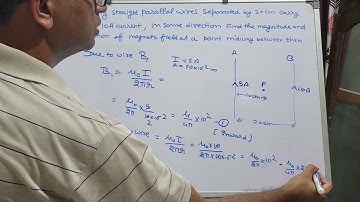 g straight parallel wires separated by 20cm carry
10A current, in same direction. Find the magnitude and
on of magnetic field at a point midway between them
Due to wire B₁
B₁ = μ₀I / 2πr
I = 5A
r = 10×10⁻² m
= μ₀/2π × 5/10×10⁻² = μ₀/4π × 10² — ①
(Inward)
wire = μ₀I / 2πr = μ₀×10 / 2π×10×10⁻² = μ₀/2π × 10² = μ₀/4π × 2
A
B
5A
P
10A
10cm
20cm